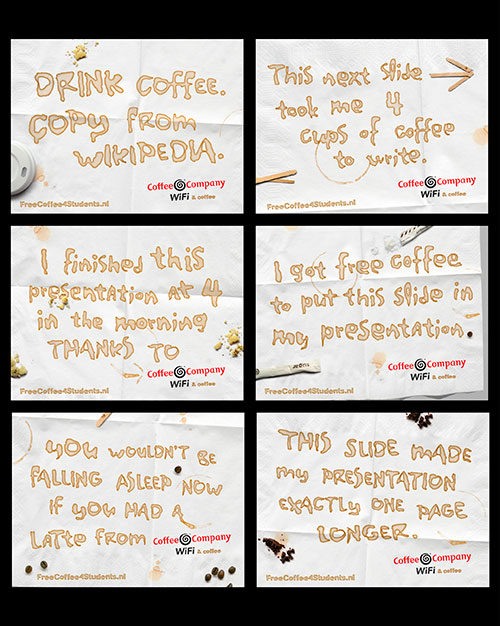 DRINK COFFEE.
COPY FROM
WIKIPEDIA.
Coffee Company
WiFi & coffee
FreeCoffee4Students.nl
This next slide
took me 4
cups of coffee
to write.
Coffee Company
WiFi & coffee
FreeCoffee4Students.nl
I finished this
presentation at 4
in the morning
THANKS TO
Coffee Company
WiFi & coffee
FreeCoffee4Students.nl
I got free coffee
to put this slide in
my presentation
Coffee Company
WiFi & coffee
FreeCoffee4Students.nl
YOU WOULDN'T BE
FALLING ASLEEP NOW
IF YOU HAD A
LATTE FROM
Coffee Company
WiFi & coffee
FreeCoffee4Students.nl
THIS SLIDE MADE
MY PRESENTATION
EXACTLY ONE PAGE
LONGER.
Coffee Company
WiFi & coffee
FreeCoffee4Students.nl